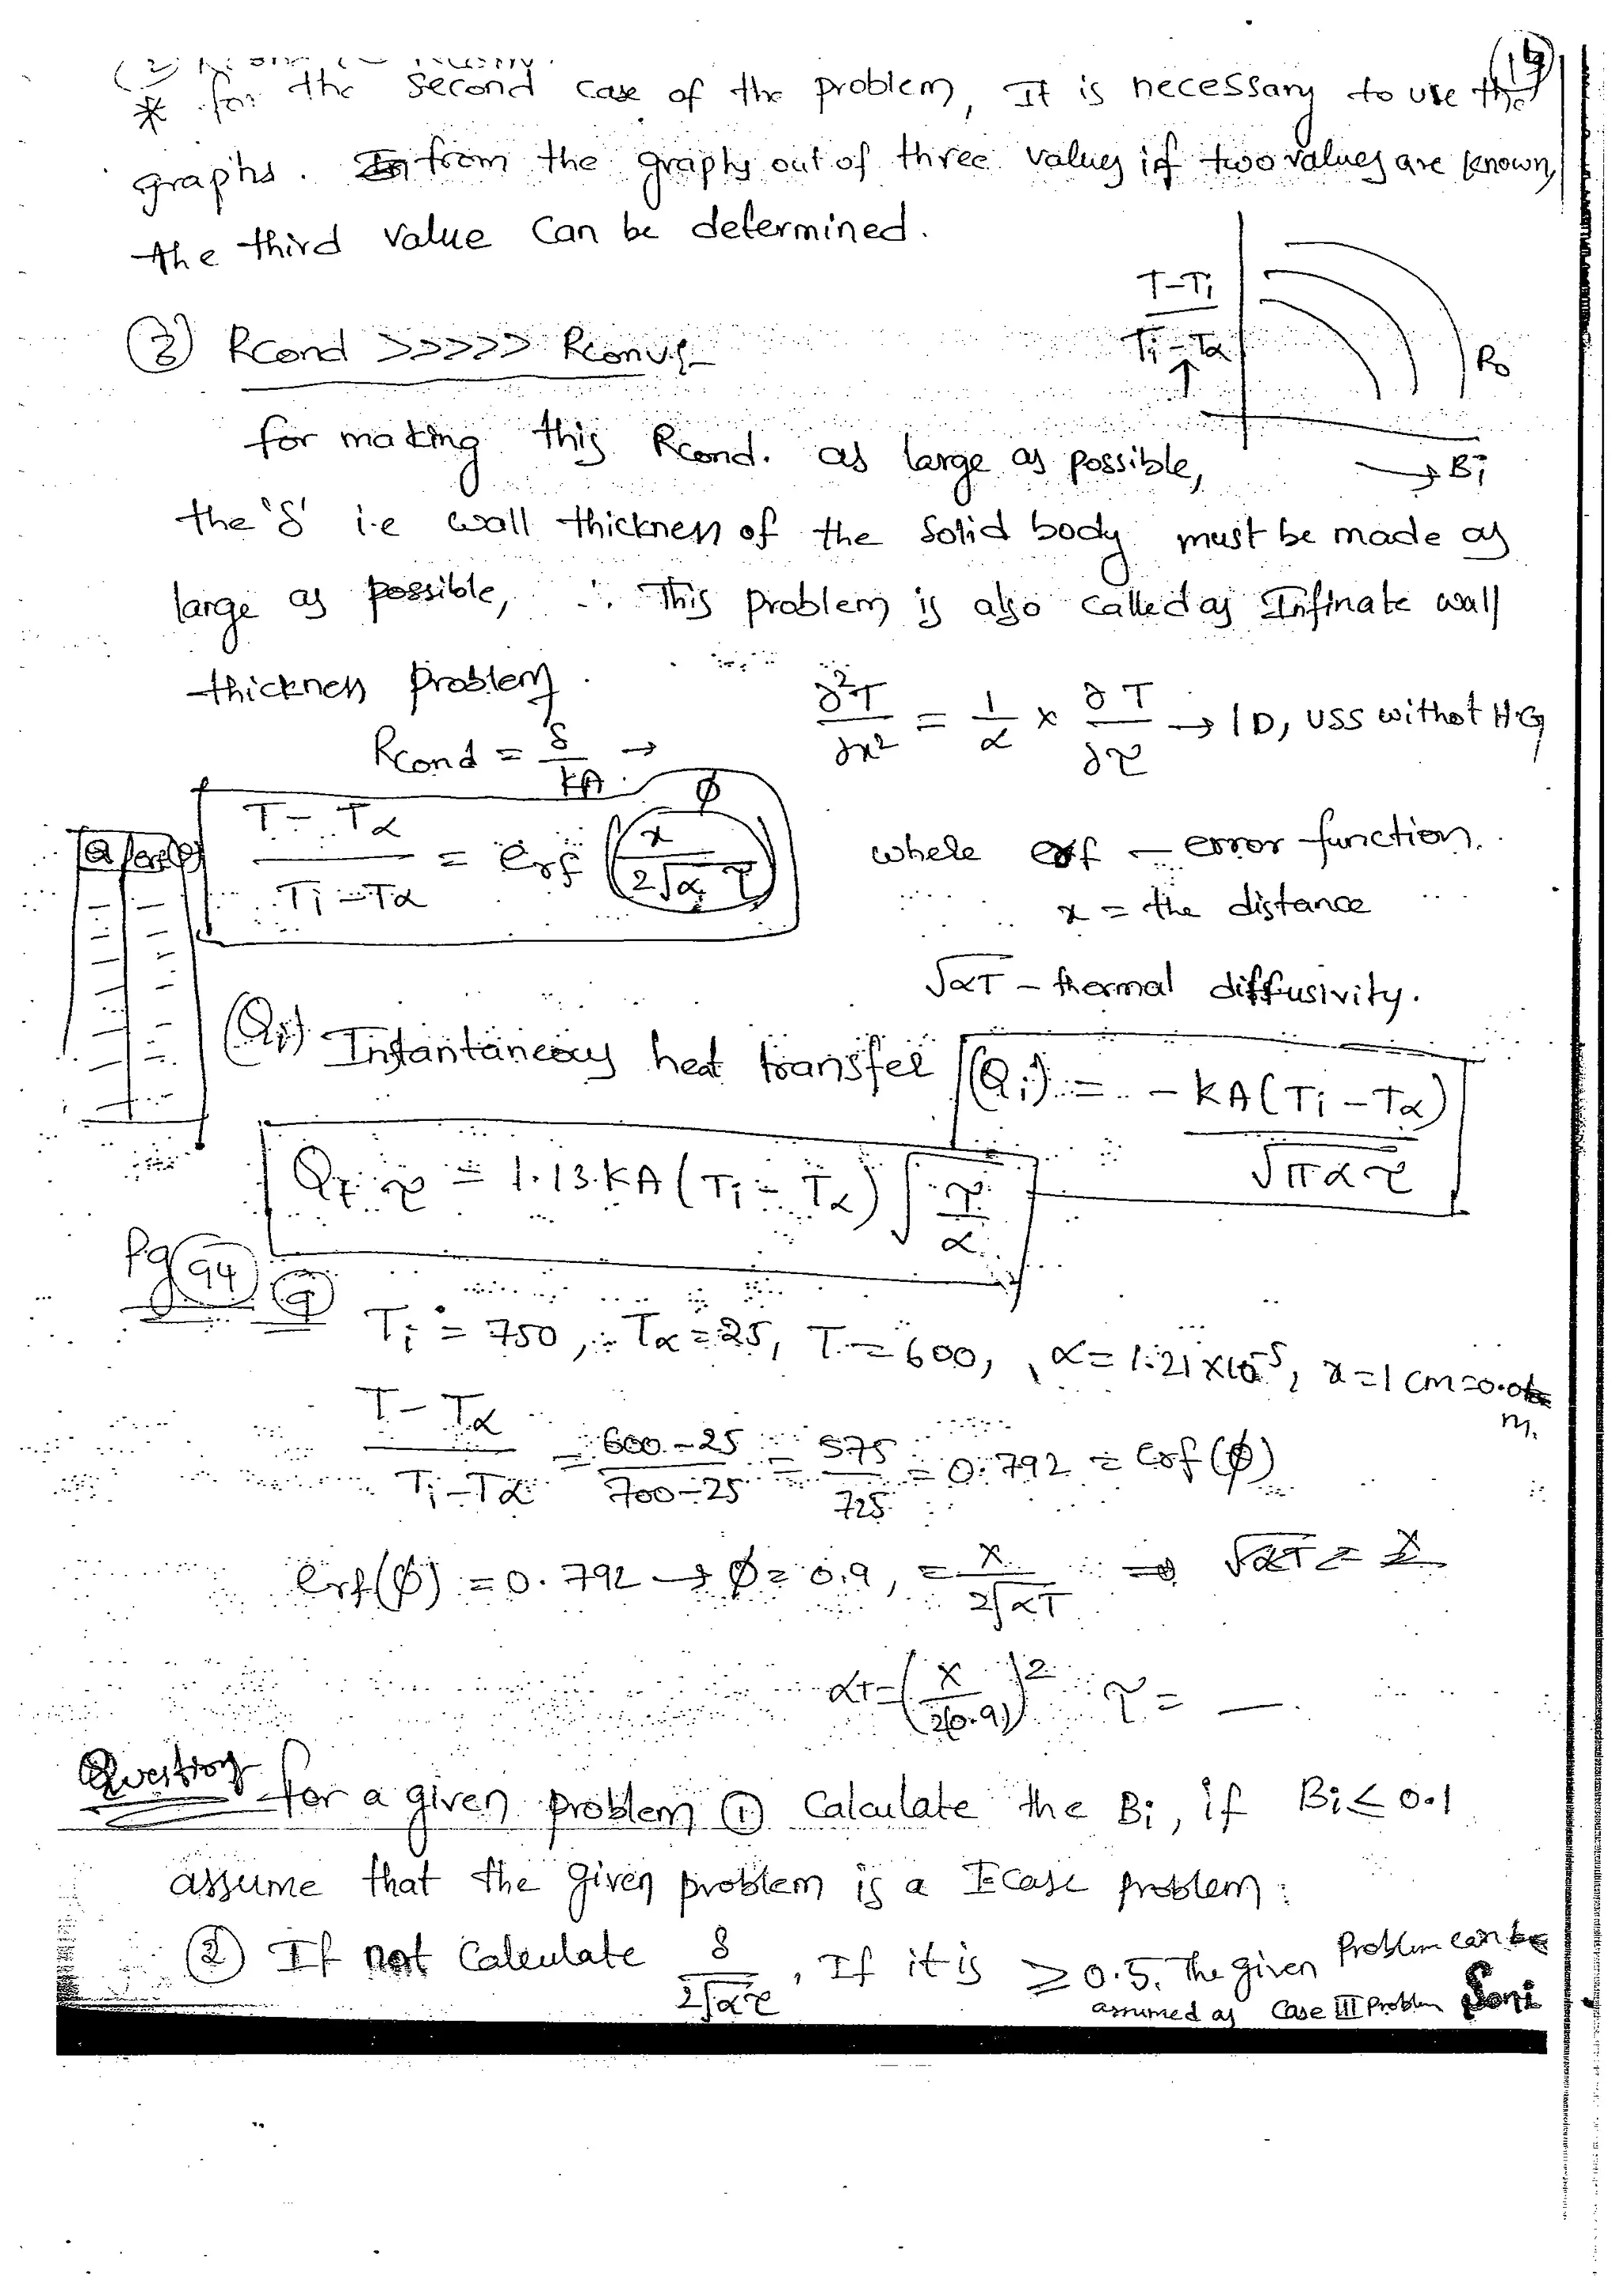 (19)
* for the second case of the problem, It is necessary to use the
graphs. from the graphs out of three values if two values are known,
the third value can be determined.
T-Ti
Ti-Tα
↑
Ro
→ Bi
③ Rcond >>>>> Rconv.
for making this Rcond. as large as possible,
the 'δ' i.e wall thickness of the solid body must be made as
large as possible, ∴ This problem is also called as Infinate wall
thickness problem.
∂²T/∂x² = 1/α × ∂T/∂τ → 1D, USS without HG
Rcond = δ/kA →
T-Tα/Ti-Tα = erf (x/2√α τ) ϕ
where erf - error function.
x = the distance
√αT - thermal diffusivity.
(Qi) Instantaneous heat transfer (Qi) = -kA(Ti-Tα)/√πατ
Qt τ = 1.13 kA (Ti - Tα) √τ/α
Pg 94 9
Ti = 750, Tα = 25, T = 600, α = 1.21×10⁻⁵, x = 1 cm = 0.01
m.
T-Tα/Ti-Tα = 600-25/700-25 = 575/725 = 0.792 = erf(ϕ)
erf(ϕ) = 0.792 → ϕ = 0.9, = x/2√αT ⇒ √αT = x/2
αT = (x/2(0.9))² τ = —.
Question for a given problem ① Calculate the Bi, if Bi ≤ 0.1
assume that the given problem is a I case problem:
② If not Calculate δ/2√ατ, If it is ≥ 0.5. The given Problem can be
assumed as Case III Problem Soni